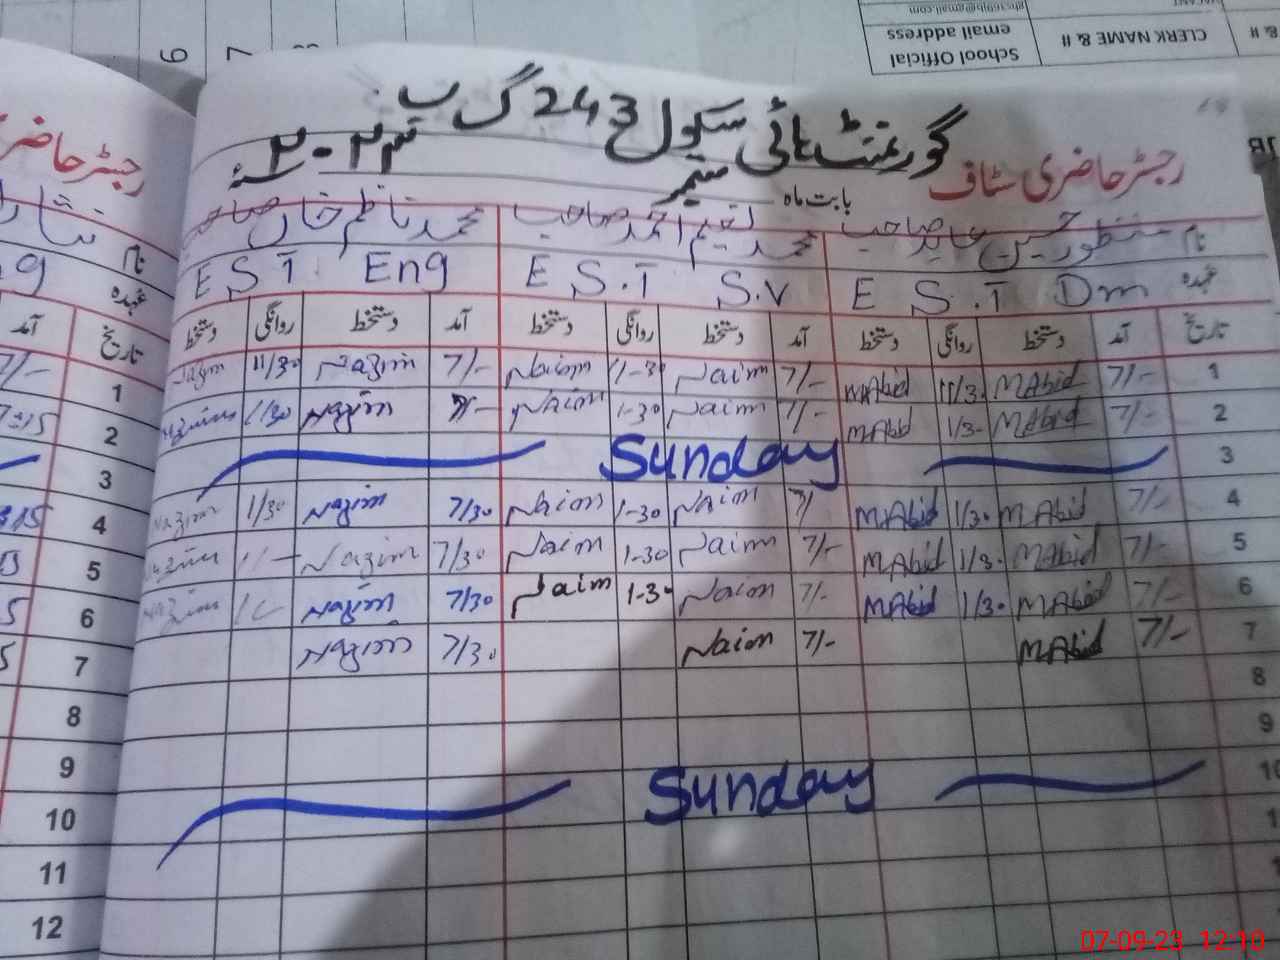 گورنمنٹ ہائی سکول 243 گ ب
رجسٹر حاضری سٹاف
بابت ماہ ستمبر ۲۰۲۳ء
نام منظور حسین عابد صاحب محمد نعیم احمد صاحب محمد ناظم خاں صاحب
عہدہ E S.T Dm E S.T S.V E S T Eng
تاریخ آمد دستخط روانگی دستخط آمد دستخط روانگی دستخط آمد دستخط روانگی دستخط
1 7/- MAbid 11/30 MAbid 7/- Naim 11-30 Naim 7/- Nazim 11/30 Nazim
2 7/- MAbid 1/30 MAbid 7/- Naim 1-30 Naim 7/- Nazim 1/30 Nazim
3 Sunday
4 7/- MAbid 1/30 MAbid 7/ Naim 1-30 Naim 7/30 Nazim 1/30 Nazim
5 7/- MAbid 1/30 MAbid 7/- Naim 1-30 Naim 7/30 Nazim 1/- Nazim
6 7/- MAbid 1/30 MAbid 7/- Naim 1-30 Naim 7/30 Nazim Nazim
7 7/- MAbid 7/- Naim 7/30 Nazim
8
9
10 Sunday
رجسٹر حاضری
نام
عہدہ
تاریخ آمد
1 7/-
2 7:15
3
4
5
6
7
8
9
10
11
12
School Official
email address
CLERK NAME & #
07-09-23 12:10